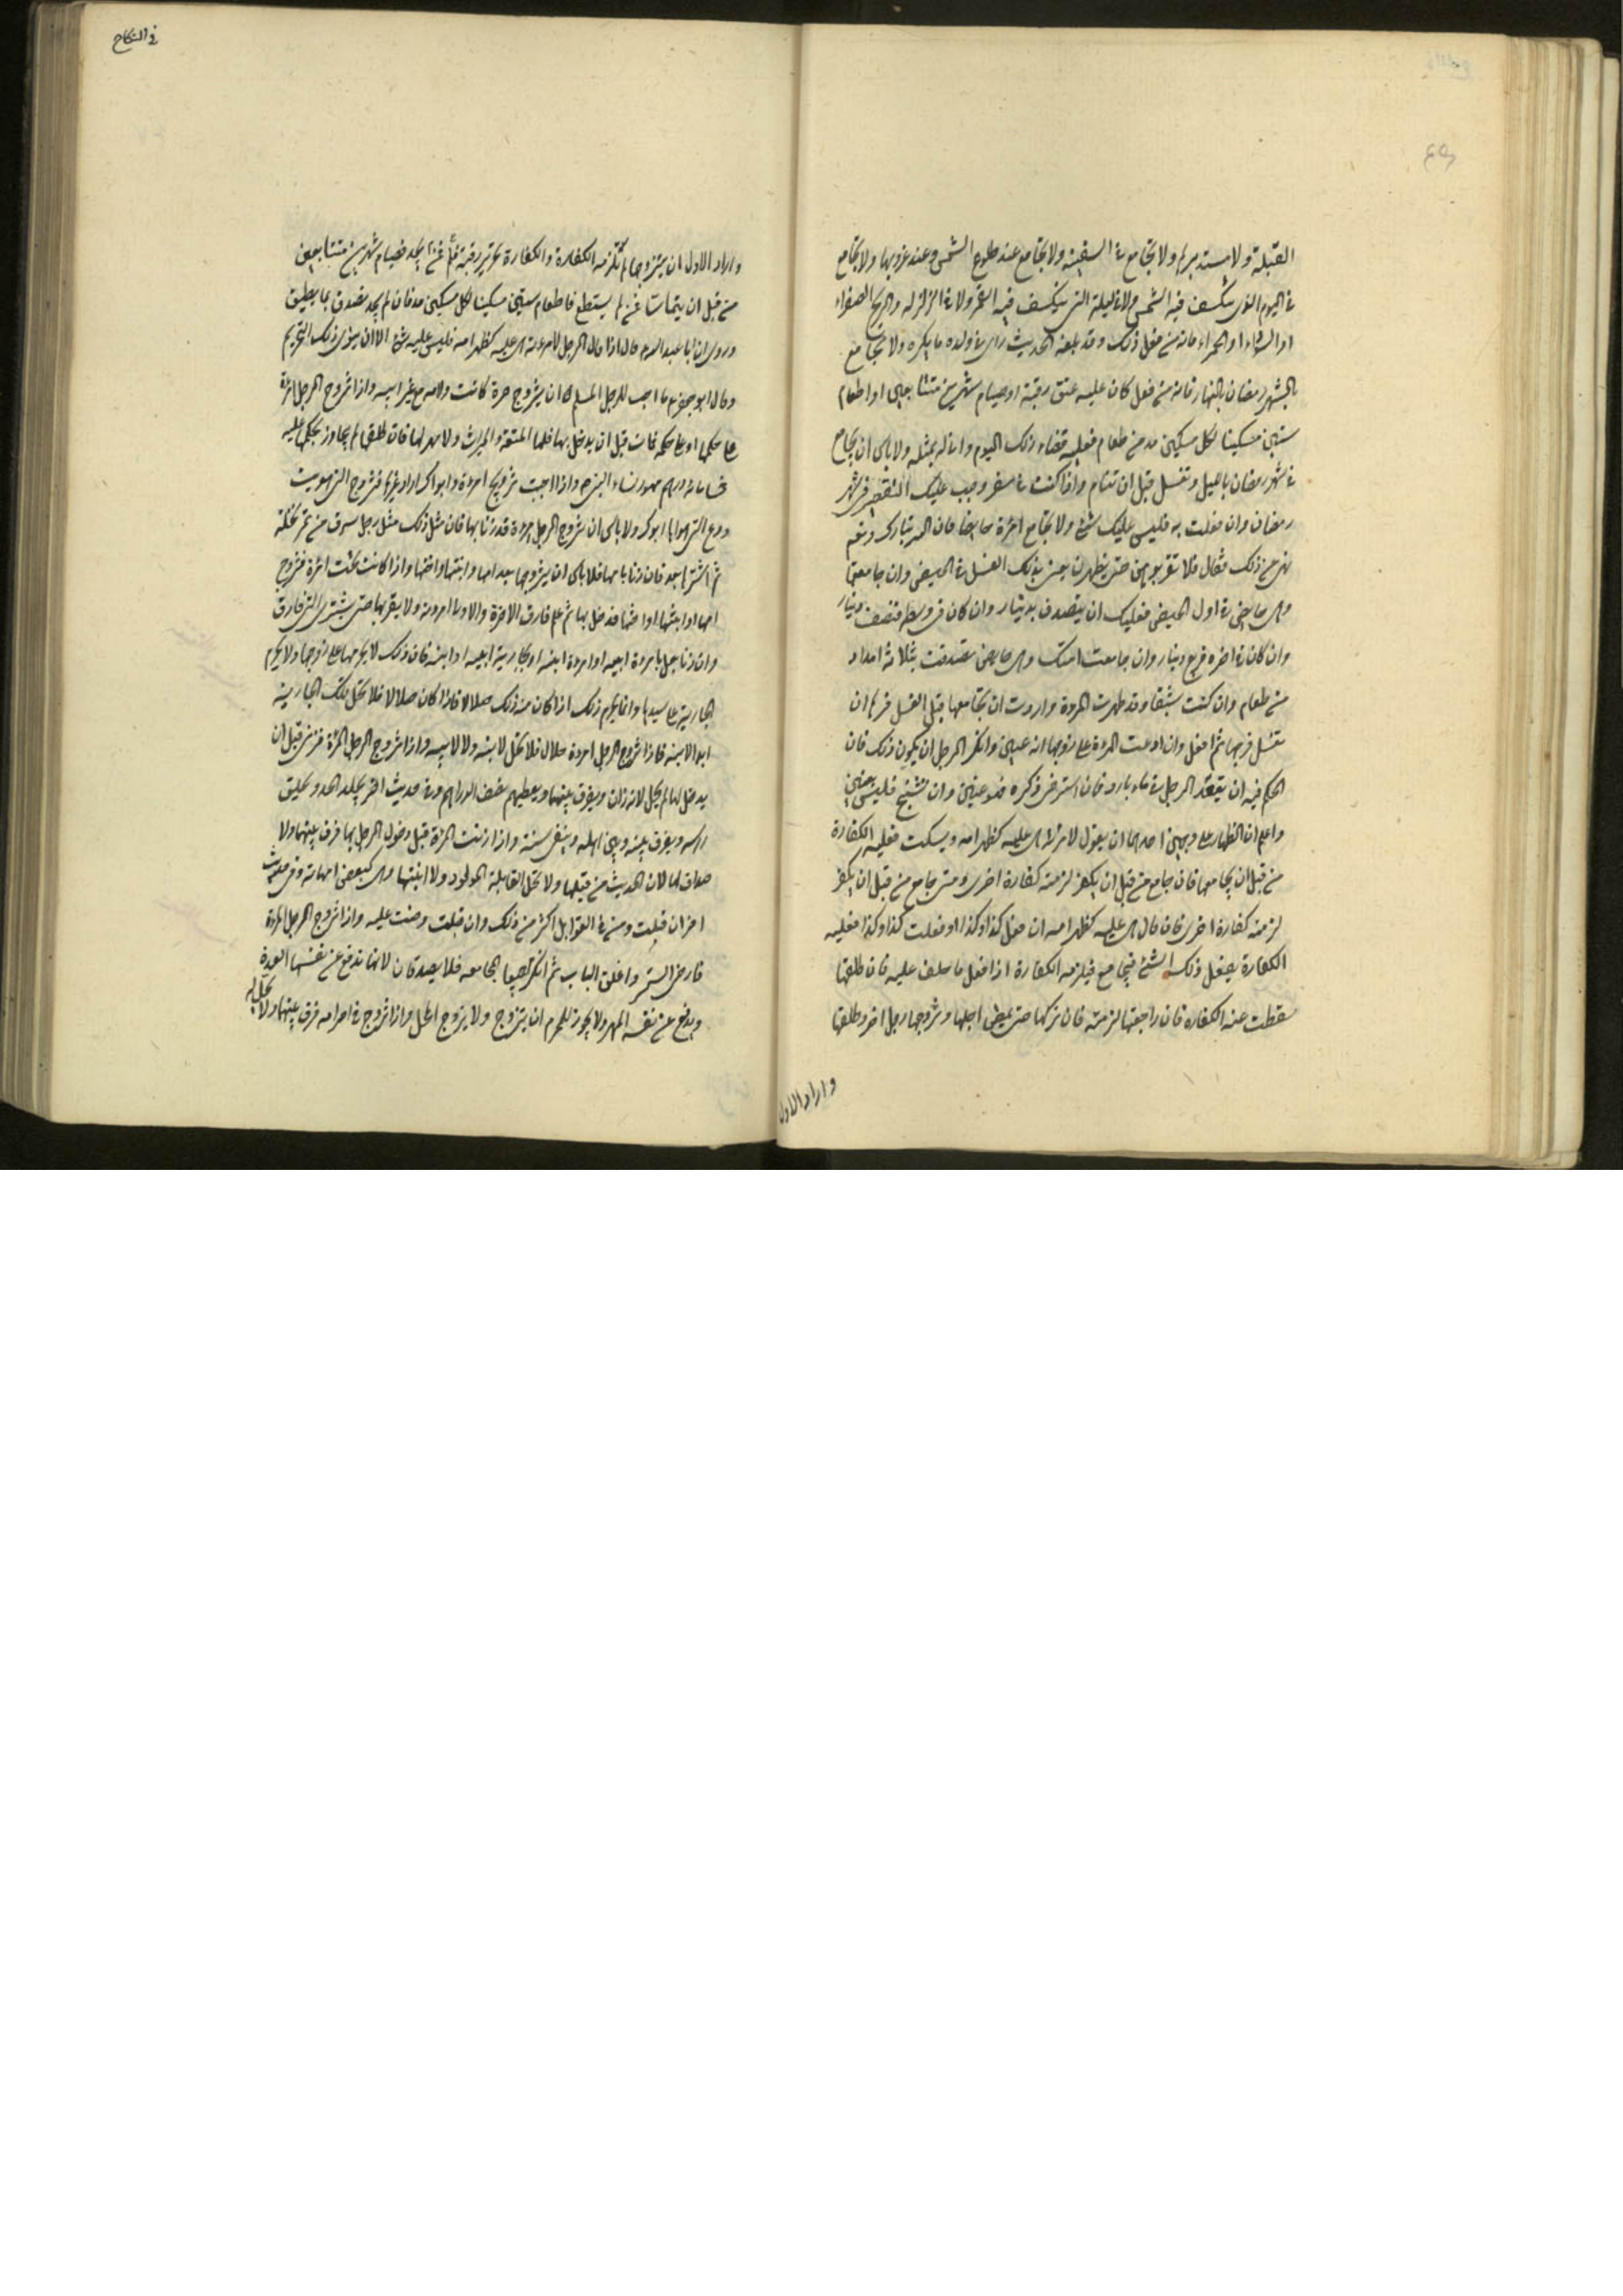 القبلة ولا مستدبرها ولا تجامع في السفينة ولا تجامع عند طلوع الشمس وعند غروبها ولا تجامع
في اليوم الذي ينكسف فيه الشمس ولا في ليلة التي ينكسف فيه القمر ولا في الزلزله والريح الصفراء
او السوداء او الحمراء فانه من فعل ذلك وقد بلغه الحديث راى في ولده ما يكره ولا تجامع
في شهر رمضان بالنهار فانه من فعل كان عليه عتق رقبة او صيام شهرين متتابعين او اطعام
ستين مسكينا لكل مسكين مد من طعام فعليه قضاء ذلك اليوم وانا له بمثله ولا باس ان تجامع
في شهر رمضان بالليل وتغتسل قبل ان تنام واذا كنت في سفر وجب عليك التقصير في شهر
رمضان وان فعلت به فليس عليك شئ ولا تجامع امرءة حايضا فان الله تبارك وتعم
نهى عن ذلك فقال فلا تقربوهن حتى يطهرن يعني بذلك الغسل من الحيض وان جامعتها
وهى حايض في اول الحيض فعليك ان تتصدق بدينار وان كان في وسطه فنصف دينار
وان كان في اخره فربع دينار وان جامعت امتك وهى حايض تصدقت بثلاثة امداد
من طعام وان كنت شبقا وقد طهرت المرءة واردت ان تجامعها قبل الغسل فمرها ان
تغسل فرجها ثم افعل وان ادعت المرءة على زوجها انه عنين وانكر الرجل ان يكون ذلك فان
الحكم فيه ان يقعد الرجل في ماء بارد فان استرخى ذكره فهو عنين وان تشنج فليس بعنين
واعلم ان الظهار على وجهين احدها ان يقول لامرءته هى عليه كظهر امه ويسكت فعليه الكفارة
من قبل ان يجامعها فان جامع من قبل ان يكفر لزمته كفارة اخرى ومتى جامع من قبل ان يكفر
لزمته كفارة اخرى فان قال هى عليه كظهر امه ان فعل كذا وكذا او فعلت كذا وكذا فعليه
الكفارة يفعل ذلك الشئ فيجامع فيلزمه الكفارة اذا فعل ما حلف عليه فان طلقها
سقطت عنه الكفارة فان راجعها لزمته فان تركها حتى يمضى اجلها وتزوجها رجل اخر وطلقها
واراد الاول
في النكاح
واراد الاول ان يتزوجها لم تلزمه الكفارة والكفارة تحرير رقبة فمن لم يجد فصيام شهرين متتابعين
من قبل ان يتماسا فمن لم يستطع فاطعام ستين مسكينا لكل مسكين مد فان لم يجد تصدق بما يطيق
وروى ان ابا عبد الله قال اذا قال الرجل لامرءته هى عليه كظهر امه فليس عليه شئ الا ان ينوى ذلك التحريم
وقال ابو جعفر ع ما احب للرجل المسلم ان يتزوج ضرة كانت لامه مع غير ابيه واذا تزوج الرجل امرءة
على حكمها او على حكمه فمات قبل ان يدخل بها فلها المتعة والميراث ولا مهر لها فان طلقها لم يجاوز بحكمها عليه
خمسمائة درهم مهور نساء النبي ص واذا احببت تزويج امرءة وابواك اراد غيرها فتزوج التى هويت
ودع التى هوى ابواك ولا باس ان تزوج الرجل امرءة قد زنا بها فان مثل ذلك مثل رجل سرق من تمر نخلة
ثم اشتراها بعد فان زنا بامها فلا باس ان يتزوجها بعد امها وابنتها واختها واذا كانت تحت امرءة فتزوج
امها او ابنتها او اختها فدخل بها ثم علم فارق الاخرة والاولى امرءته ولا يقربها حتى يستبرئ التى فارق
وان زنا رجل بامرءة ابيه او امرءة ابنه او بجارية ابيه او ابنه فان ذلك لا يحرمها على زوجها ولا يحرم
الجارية على سيدها وانما يحرم ذلك اذا كان منه ذلك حلالا فاذا كان حلالا فلا تحل تلك الجارية
ابدا لابنه فاذا تزوج الرجل امرءة حلال فلا تحل لابنه ولا لابيه واذا تزوج الرجل المرءة فزنى قبل ان
يدخل بها لم يحل لانه زان ويفرق بينهما ويعطيهم نصف الدراهم وفي حديث اخر يجلد الحد ويحلق
راسه ويفرق بينه وبين اهله وينفى سنة واذا زنت المرءة قبل دخول الرجل بها فرق بينهما ولا
صداق لها لان الحدث من قبلها ولا تحل القابلة المولود ولا ابنتها وهى كبعض امهاته وفي حديث
اخر ان قبلت ومرت فالقوابل اكثر من ذلك وان قبلت وربت عليه واذا تزوج الرجل المرءة
فارخى الستر واغلق الباب ثم انكرا جميعا المجامعه فلا يصدقان لانها تدفع عن نفسها العدة
ويدفع عن نفسه المهر ولا يجوز للمحرم ان يتزوج ولا يزوج المحل واذا تزوج في احرامه فرق بينهما ولا تحل له